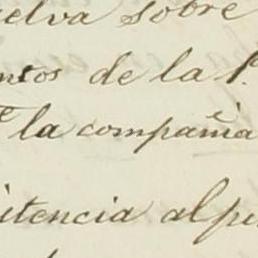 elva sobre
ntos de la 1ª
e la compañia
istencia al pe